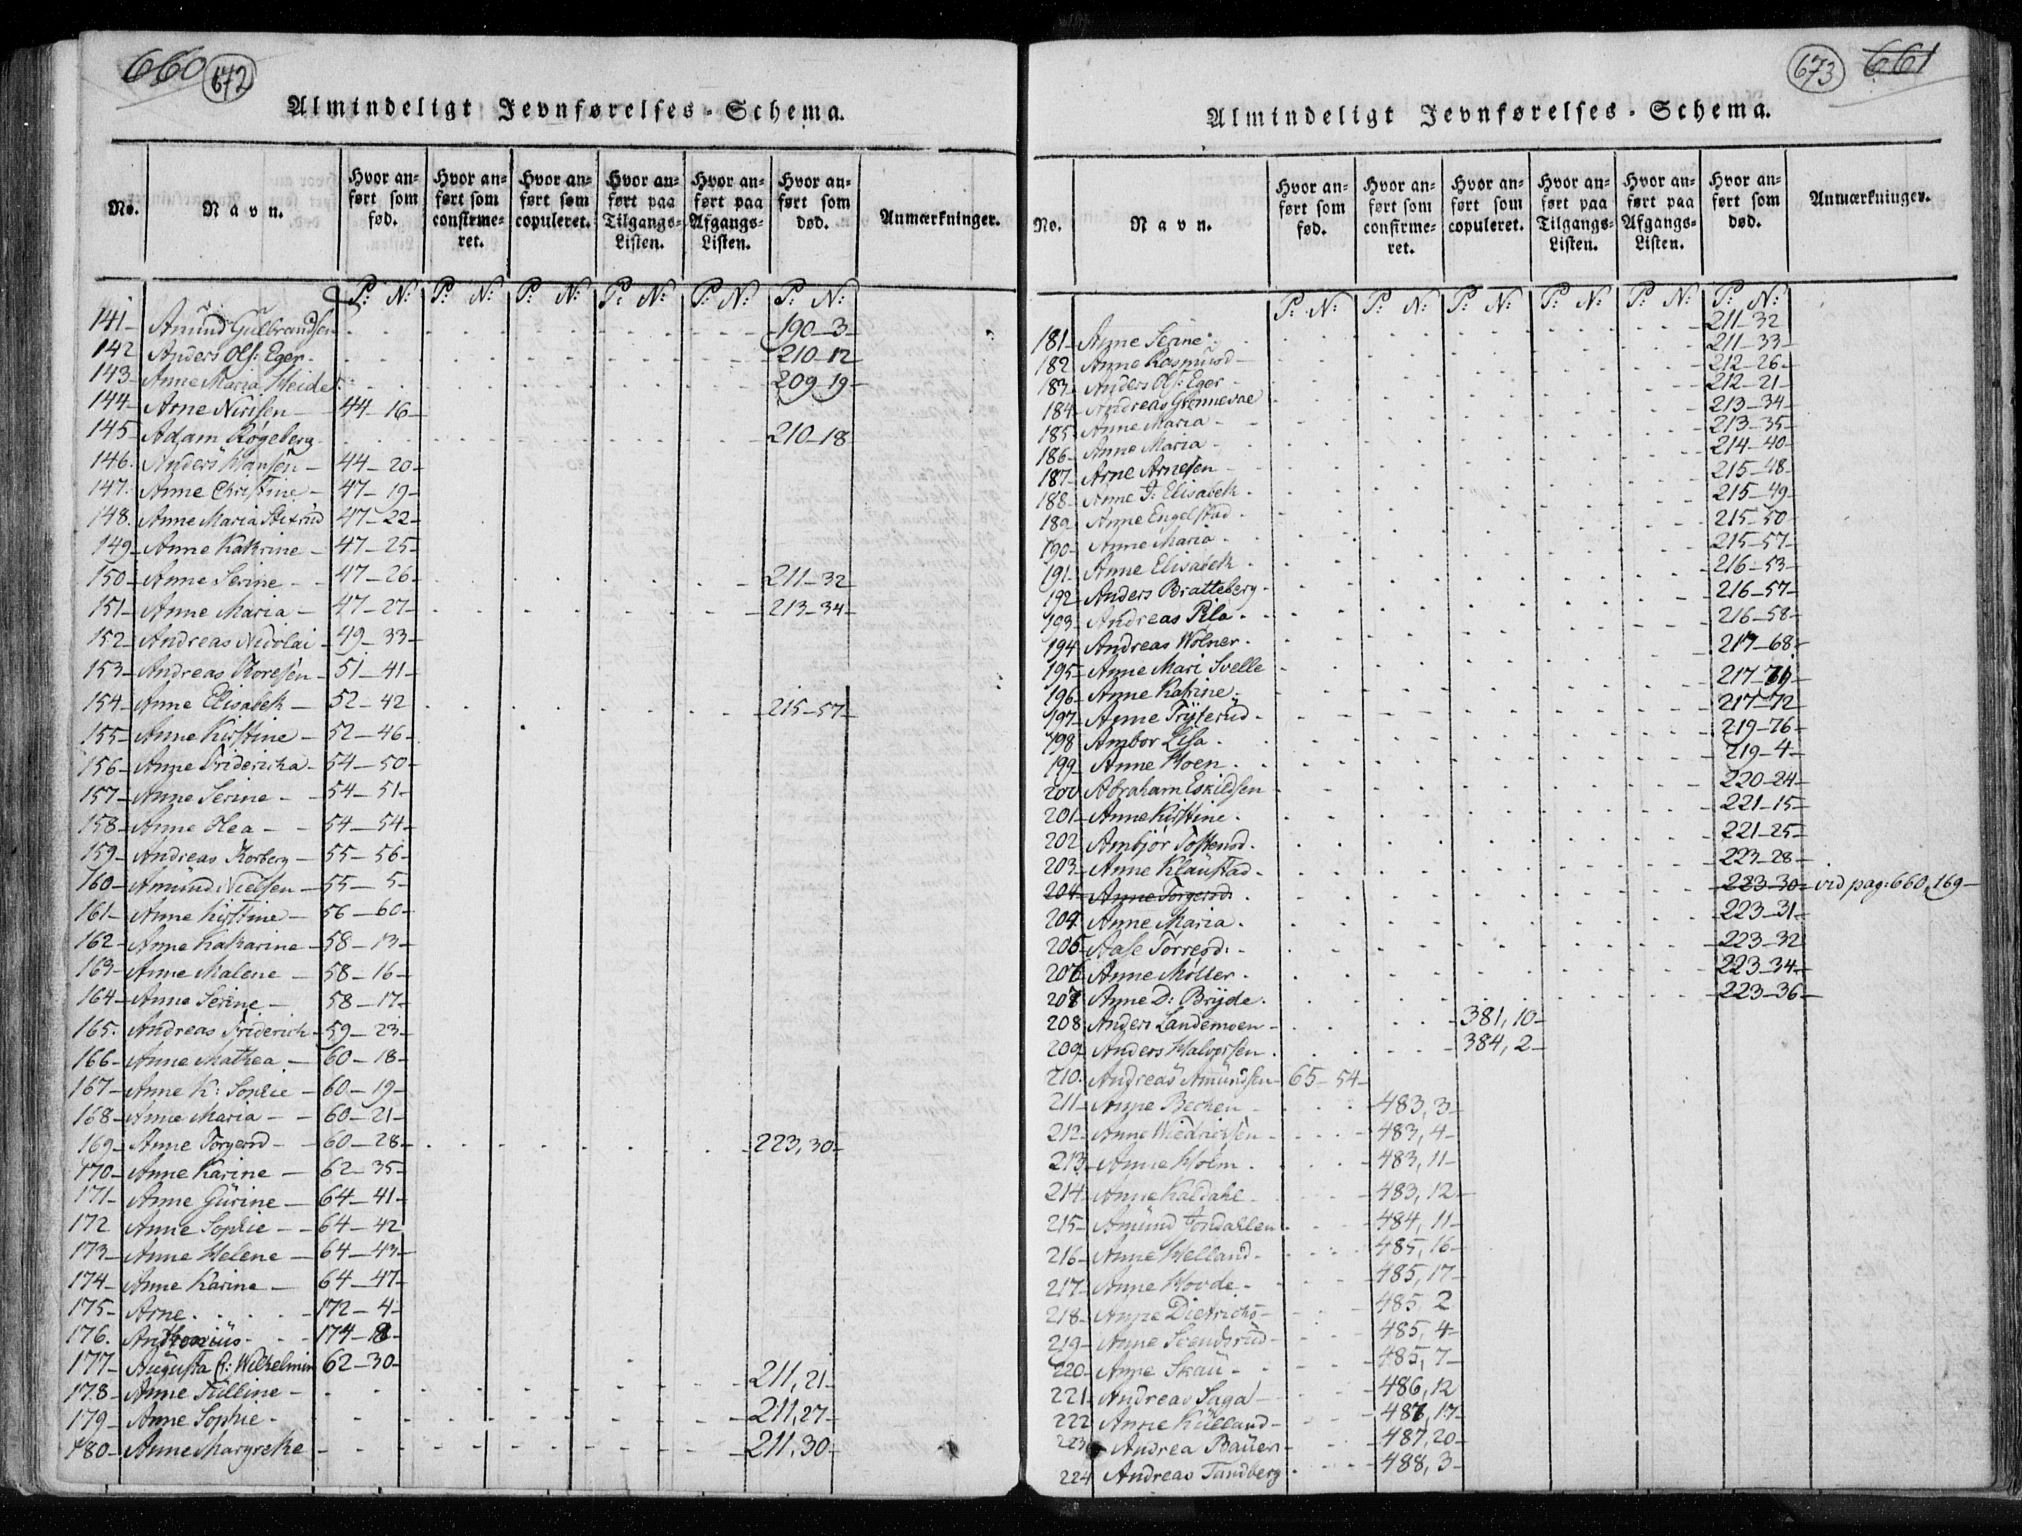 660 672
Almindeligt Jevnførelses-Schema.
No. Navn. Hvor anført som fød. Hvor anført som confirmeret. Hvor anført som copuleret. Hvor anført paa Tilgangs-Listen. Hvor anført paa Afgangs-Listen. Hvor anført som død. Anmærkninger.
P: N: P: N: P: N: P: N: P: N: P: N:
141 Amund Gulbrandsen 190-3
142 Anders Ols: Eger 210-12
143 Anne Maria Heide 209-19
144 Arne Nirisen 44-16
145 Adam Røgeberg 210-18
146 Anders Hansen 44-20
147 Anne Christine 47-19
148 Anne Maria 47-22
149 Anne Kathrine 47-25
150 Anne Serine 47-26 211-32
151 Anne Maria 47-27 213-34
152 Andreas Nicolai 49-33
153 Andreas Thoresen 51-41
154 Anne Elisabeth 52-42 215-57
155 Anne Kirstine 52-46
156 Anne Fridericha 54-50
157 Anne Serine 54-51
158 Anne Olea 54-54
159 Andreas Korberg 55-56
160 Amund Nielsen 55-5
161 Anne Kirstine 56-60
162 Anne Katharine 58-13
163 Anne Malene 58-16
164 Anne Serine 58-17
165 Andreas Friderich 59-23
166 Anne Mathea 60-18
167 Anne K: Sophie 60-19
168 Anne Maria 60-21
169 Anne Torgersd 60-28 223,30
170 Anne Karine 62-35
171 Anne Gurine 64-41
172 Anne Sophie 64-42
173 Anne Helene 64-43
174 Anne Karine 64-47
175 Arne 172-4
176 Anthonius 174-18
177 Augusta C: Wilhelmin 62-30
178 Anne Tulline 211,21
179 Anne Sophie 211,27
180 Anne Margrethe 211,30
673 661
Almindeligt Jevnførelses-Schema.
No. Navn. Hvor anført som fød. Hvor anført som confirmeret. Hvor anført som copuleret. Hvor anført paa Tilgangs-Listen. Hvor anført paa Afgangs-Listen. Hvor anført som død. Anmærkninger.
P: N: P: N: P: N: P: N: P: N: P: N:
181 Anne Serine 211-32
182 Anne Rasmusd 211-33
183 Anders Ols: Eger 212-26
184 Andreas Grønnevae 212-21
185 Anne Maria 213-34
186 Anne Maria 213-35
187 Arne Arnesen 214-40
188 Anne J: Elisabeth 215-48
189 Anne Engelstad 215-49
190 Anne Maria 215-50
191 Anne Elisabeth 215-57
192 Anders Bratteberg 216-53
193 Andreas Pila 216-57
194 Andreas Wolner 216-58
195 Anne Mari Svelle 217-68
196 Anne Katrine 217-71
197 Anne Fryterud 217-72
198 Ambor Lisa 219-76
199 Anne Moen 219-4
200 Abraham Eskildsen 220-24
201 Anne Kirstine 221-15
202 Ambjør Tostensd 221-25
203 Anne Klaustad 223-28
204 Anne Torgersd 223-30 vid pag: 660, 169
204 Anne Maria 223-31
205 Aase Torresd 223-32
206 Anne Møller 223-34
207 Anne D: Bryde 223-36
208 Anders Landemoen 381,10
209 Anders Halvorsen 384,2
210 Andreas Amundsen 65-54
211 Anne Bechen 483,3
212 Anne Wiedricksen 483,4
213 Anne Holm 483,11
214 Anne Kaldahl 483,12
215 Amund Jordahlen 484,11
216 Anne Helland 485,16
217 Anne Hovde 485,17
218 Anne Dietrichs 485 2
219 Anne Svendsrud 485,4
220 Anne Skau 485,7
221 Andreas Saga 486,12
222 Anne Kulland 487,17
223 Andrea Bauers 487,20
224 Andreas Tandberg 488,3